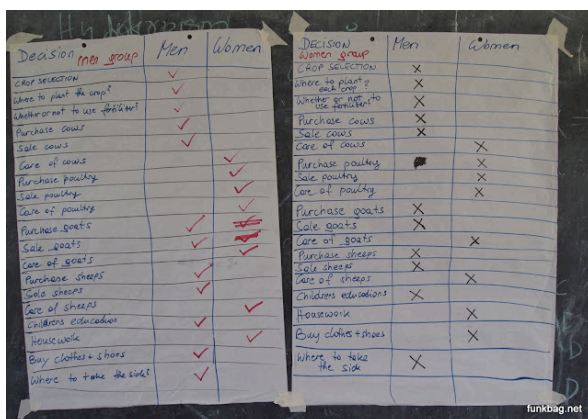 Decision Men Women
Men group
CROP SELECTION
Where to plant the crop?
Whether or not to use fertiliter?
Purchase cows
Sale cows
Care of cows
Purchase poultry
Sale poultry
Care of poultry
Purchase goats
Sale goats
Care of goats
Purchase sheeps
Sale sheeps
Care of sheeps
Childrens education
Housework
Buy clothes + shoes
Where to take the sick?
DECISION Men Women
Women group
CROP SELECTION
Where to plant?
each crop
Whether or not to
use fertiliter?
Purchase cows
Sale cows
Care of cows
Purchase poultry
Sale poultry
Care of poultry
Purchase goats
Sale goats
Care of goats
Purchase sheeps
Sale sheeps
Care of sheeps
Childrens educations
Housework
Buy clothes + shoes
Where to take
the sick
funkbag.net